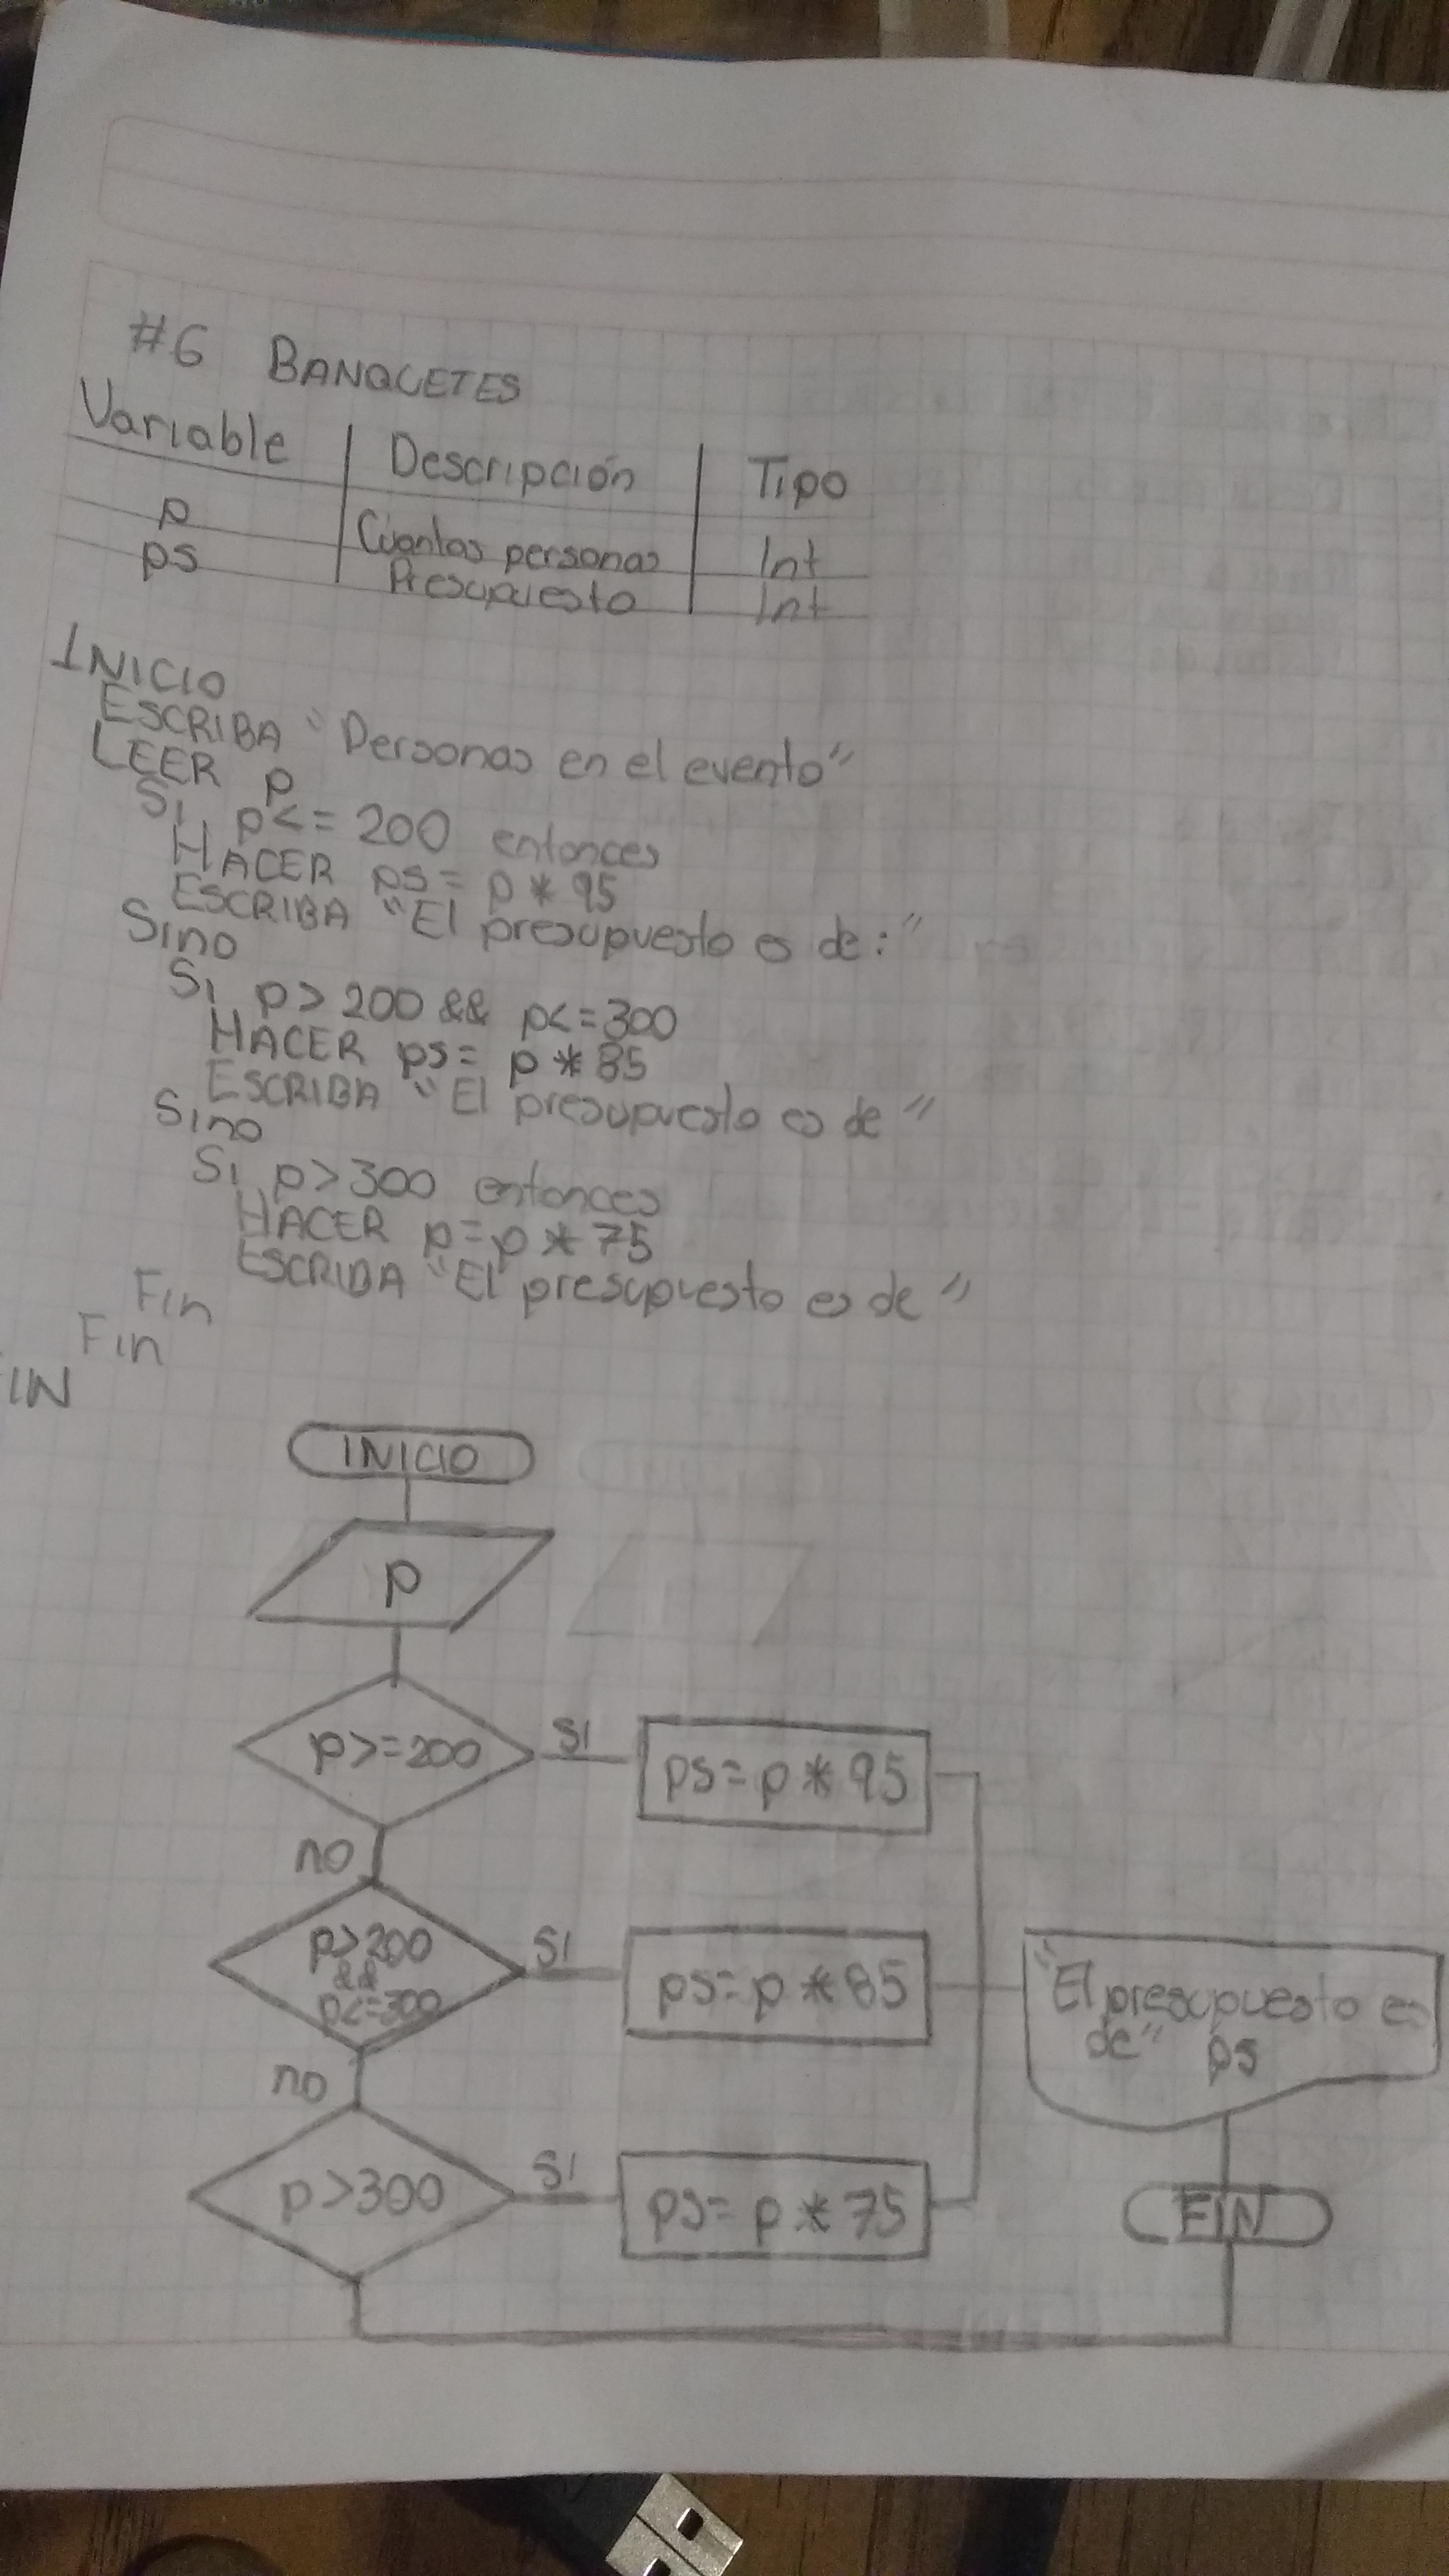 #6 BANQUETES
Variable Descripción Tipo
p Cuantas personas Int
ps Presupuesto Int
INICIO
ESCRIBA "Personas en el evento"
LEER p
Si p<=200 entonces
HACER ps= p * 95
ESCRIBA "El presupuesto es de:"
Sino
Si p>200 && p<=300
HACER ps= p * 85
ESCRIBA "El presupuesto es de"
Sino
Si p>300 entonces
HACER p=p * 75
ESCRIBA "El presupuesto es de"
Fin
Fin
IN
INICIO
p
p>=200 SI ps=p * 95
no
p>200
&&
p<=300
SI ps=p * 85
"El presupuesto es
de" ps
no
p>300 SI ps= p * 75
FIN